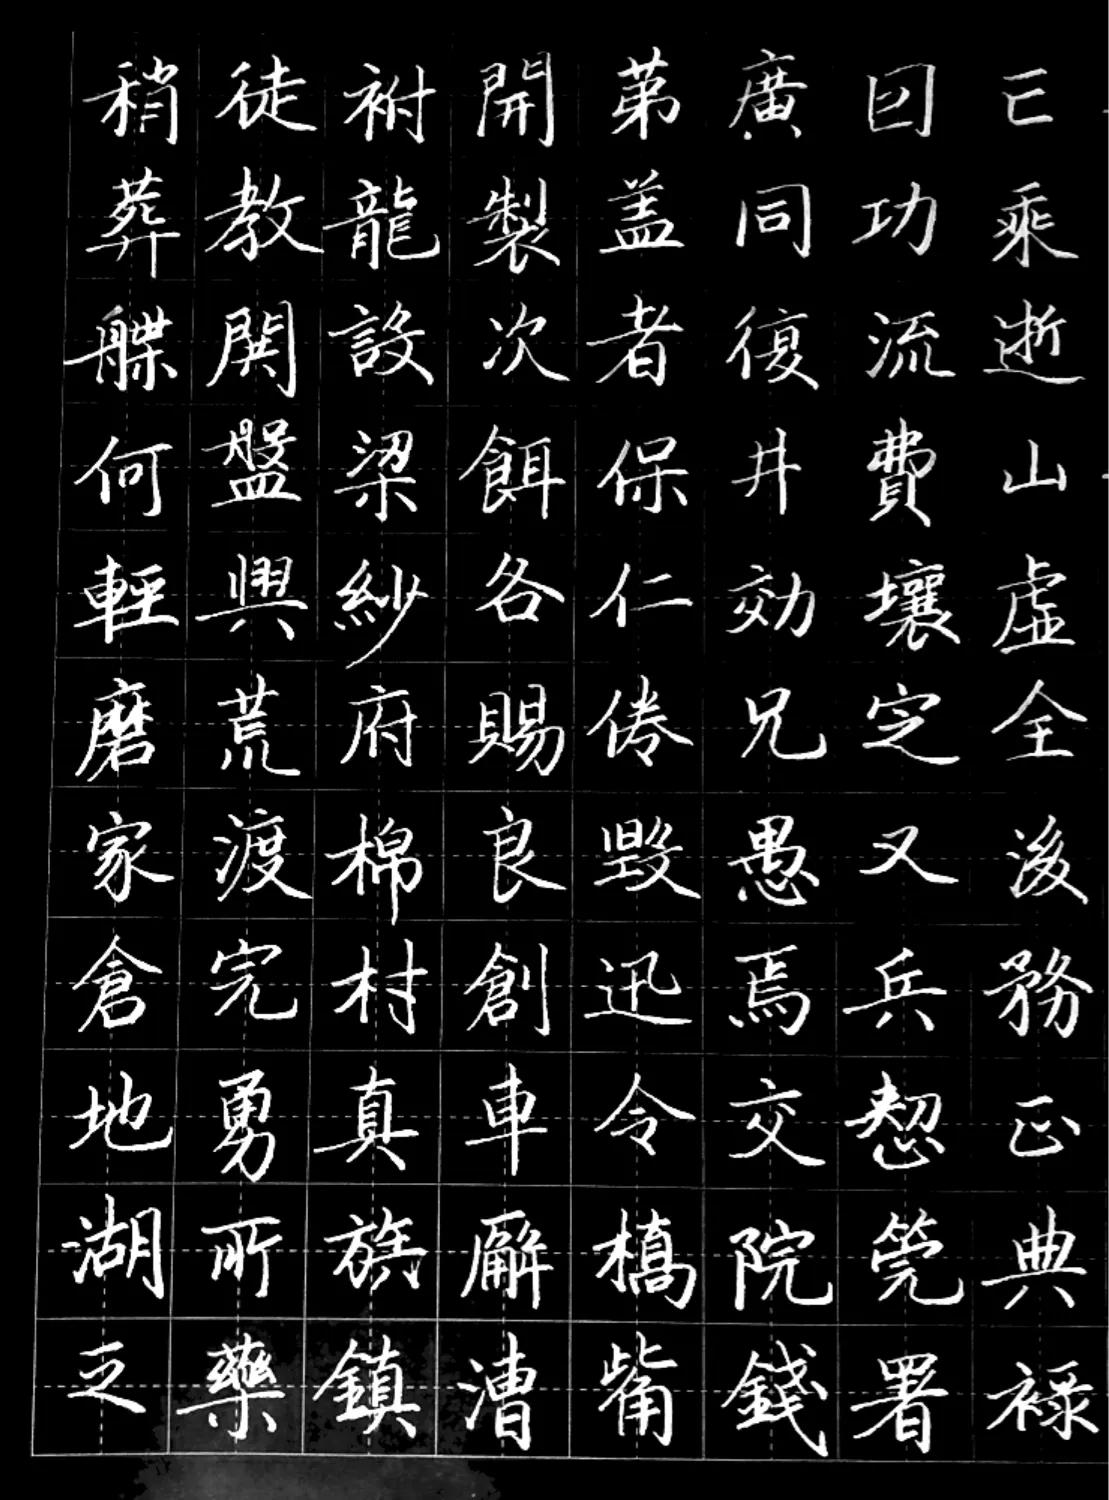 乘逝山虛全後務正典祿
回功流費壤定又兵筦署
廣同復井効兄愚焉交院錢
苐盖者保仁倦毀迅令橋觜
開製次餌各賜良創車廨漕
祔龍設梁紗府棉村真旗鎮
徒教関盤興荒渡完勇所藥
稍葬艓何輕磨家倉地湖乏